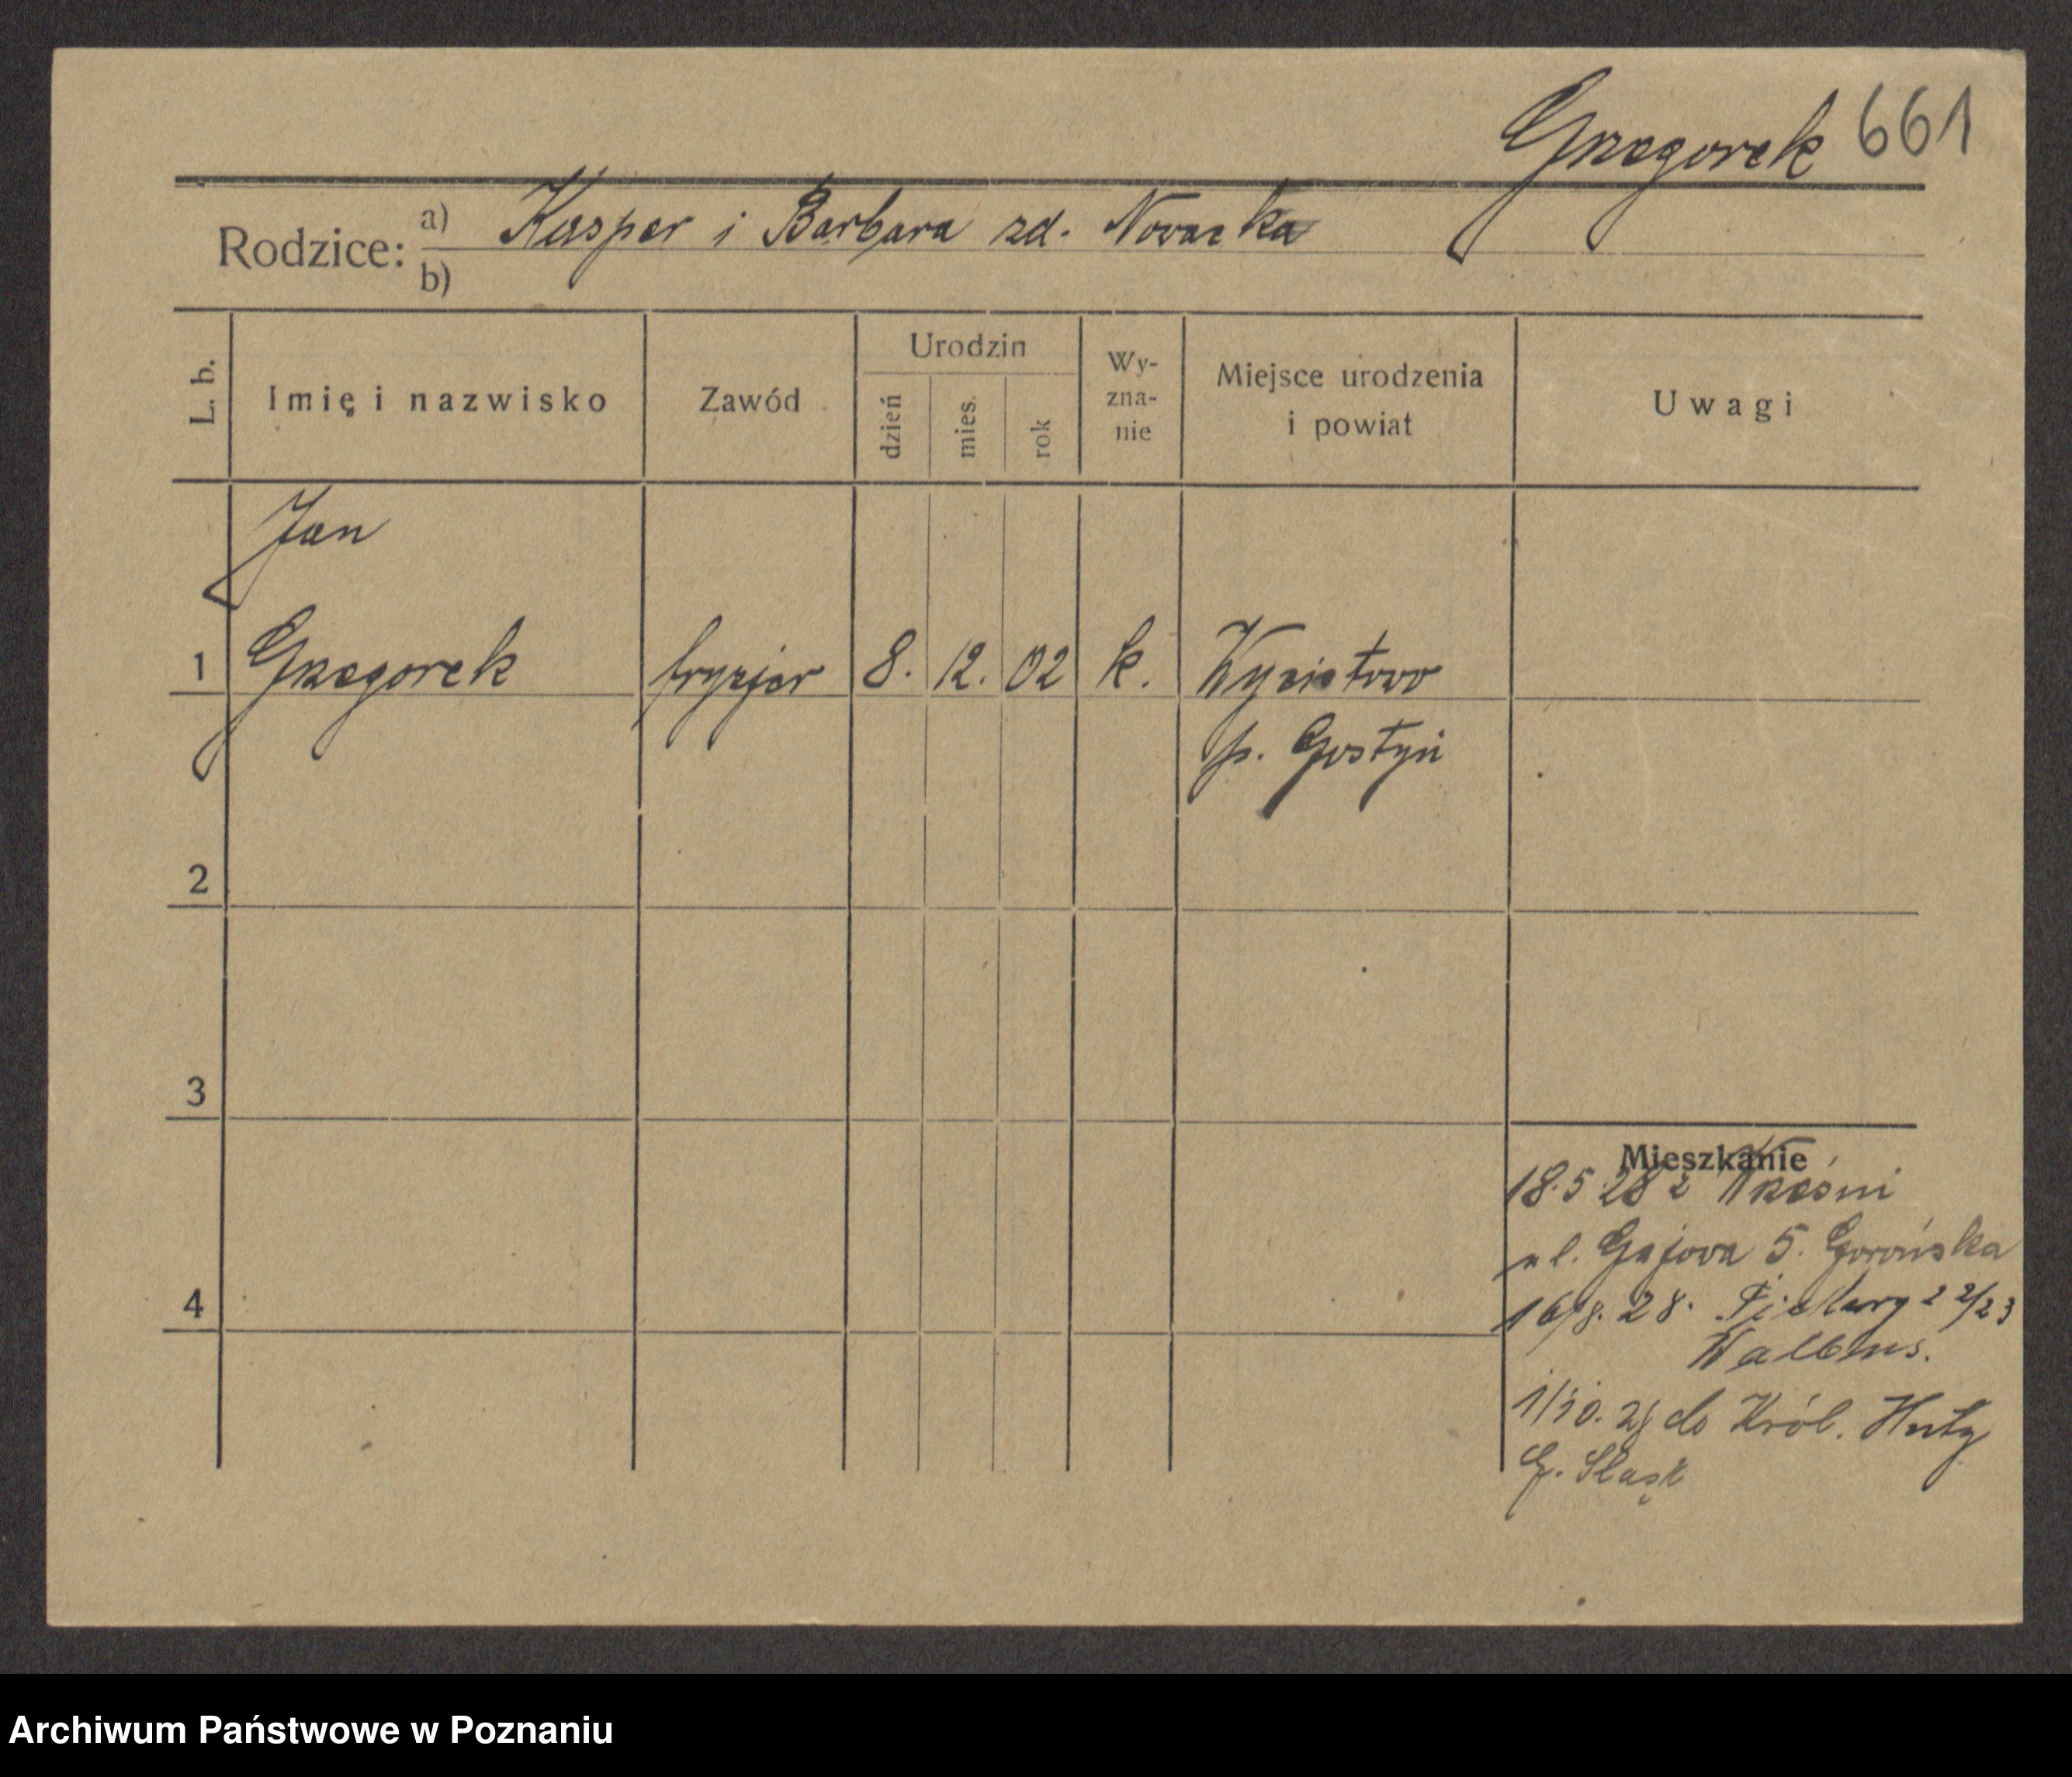 Grzegorek 661
Rodzice: a) Kasper i Barbara zd. Nowacka
b)
L. b. Imię i nazwisko Zawód Urodzin dzień mies. rok Wy-zna-nie Miejsce urodzenia i powiat Uwagi
Jan
1 Grzegorek fryzjer 8. 12. 02 k.
p. Gostyń
2
3
Mieszkanie
18.5 28 z Wrześni
ul. Gajowa 5.
4 16/8. 28.
1/10. 28 do Król. Huty
G. Śląsk
Archiwum Państwowe w Poznaniu